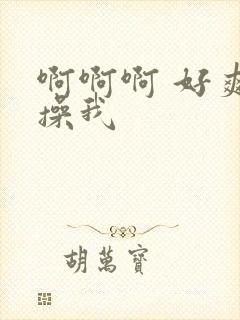 啊啊啊 好爽
操我
胡萬寶